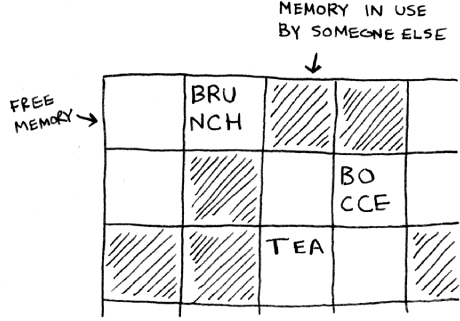 MEMORY IN USE
BY SOMEONE ELSE
FREE
MEMORY
BRU
NCH
BO
CCE
TEA